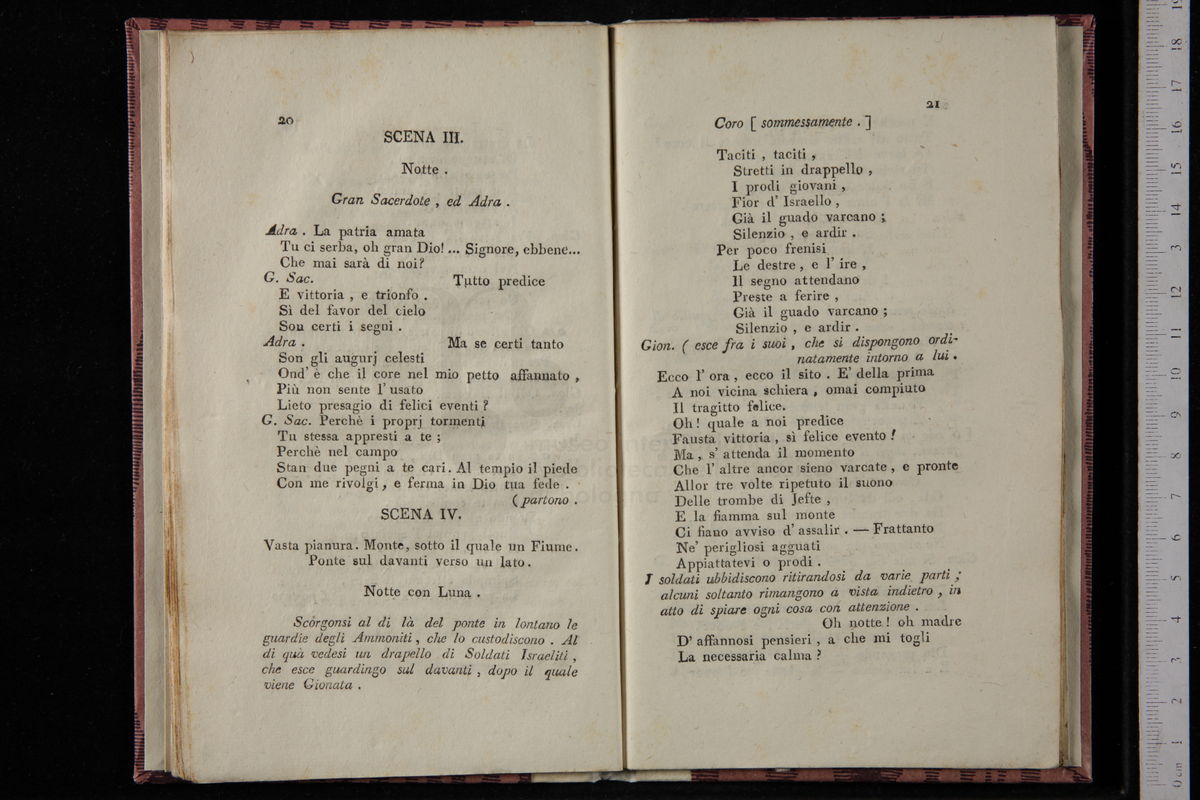 20
SCENA III.
Notte .
Gran Sacerdote , ed Adra .
Adra . La patria amata
Tu ci serba, oh gran Dio! ... Signore, ebbene...
Che mai sarà di noi?
G. Sac. Tutto predice
E vittoria , e trionfo .
Sì del favor del cielo
Son certi i segni .
Adra . Ma se certi tanto
Son gli augurj celesti
Ond' è che il core nel mio petto affannato ,
Più non sente l' usato
Lieto presagio di felici eventi ?
G. Sac. Perchè i proprj tormenti
Tu stessa appresti a te ;
Perchè nel campo
Stan due pegni a te cari. Al tempio il piede
Con me rivolgi , e ferma in Dio tua fede .
( partono .
SCENA IV.
Vasta pianura. Monte, sotto il quale un Fiume.
Ponte sul davanti verso un lato.
Notte con Luna .
Scórgonsi al di là del ponte in lontano le
guardie degli Ammoniti , che lo custodiscono . Al
di quà vedesi un drapello di Soldati Israeliti ,
che esce guardingo sul davanti , dopo il quale
viene Gionata .
21
Coro [ sommessamente . ]
Taciti , taciti ,
Stretti in drappello ,
I prodi giovani ,
Fior d' Israello ,
Già il guado varcano ;
Silenzio , e ardir .
Per poco frenisi
Le destre , e l' ire ,
Il segno attendano
Preste a ferire ,
Già il guado varcano ;
Silenzio , e ardir .
Gion. ( esce fra i suoi , che si dispongono ordi-
natamente intorno a lui .
Ecco l' ora , ecco il sito . E' della prima
A noi vicina schiera , omai compiuto
Il tragitto felice.
Oh ! quale a noi predice
Fausta vittoria , sì felice evento !
Ma , s' attenda il momento
Che l' altre ancor sieno varcate , e pronte
Allor tre volte ripetuto il suono
Delle trombe di Jefte ,
E la fiamma sul monte
Ci fiano avviso d' assalir . — Frattanto
Ne' perigliosi agguati
Appiattatevi o prodi .
I soldati ubbidiscono ritirandosi da varie parti ;
alcuni soltanto rimangono a vista indietro , in
atto di spiare ogni cosa con attenzione .
Oh notte ! oh madre
D' affannosi pensieri , a che mi togli
La necessaria calma ?